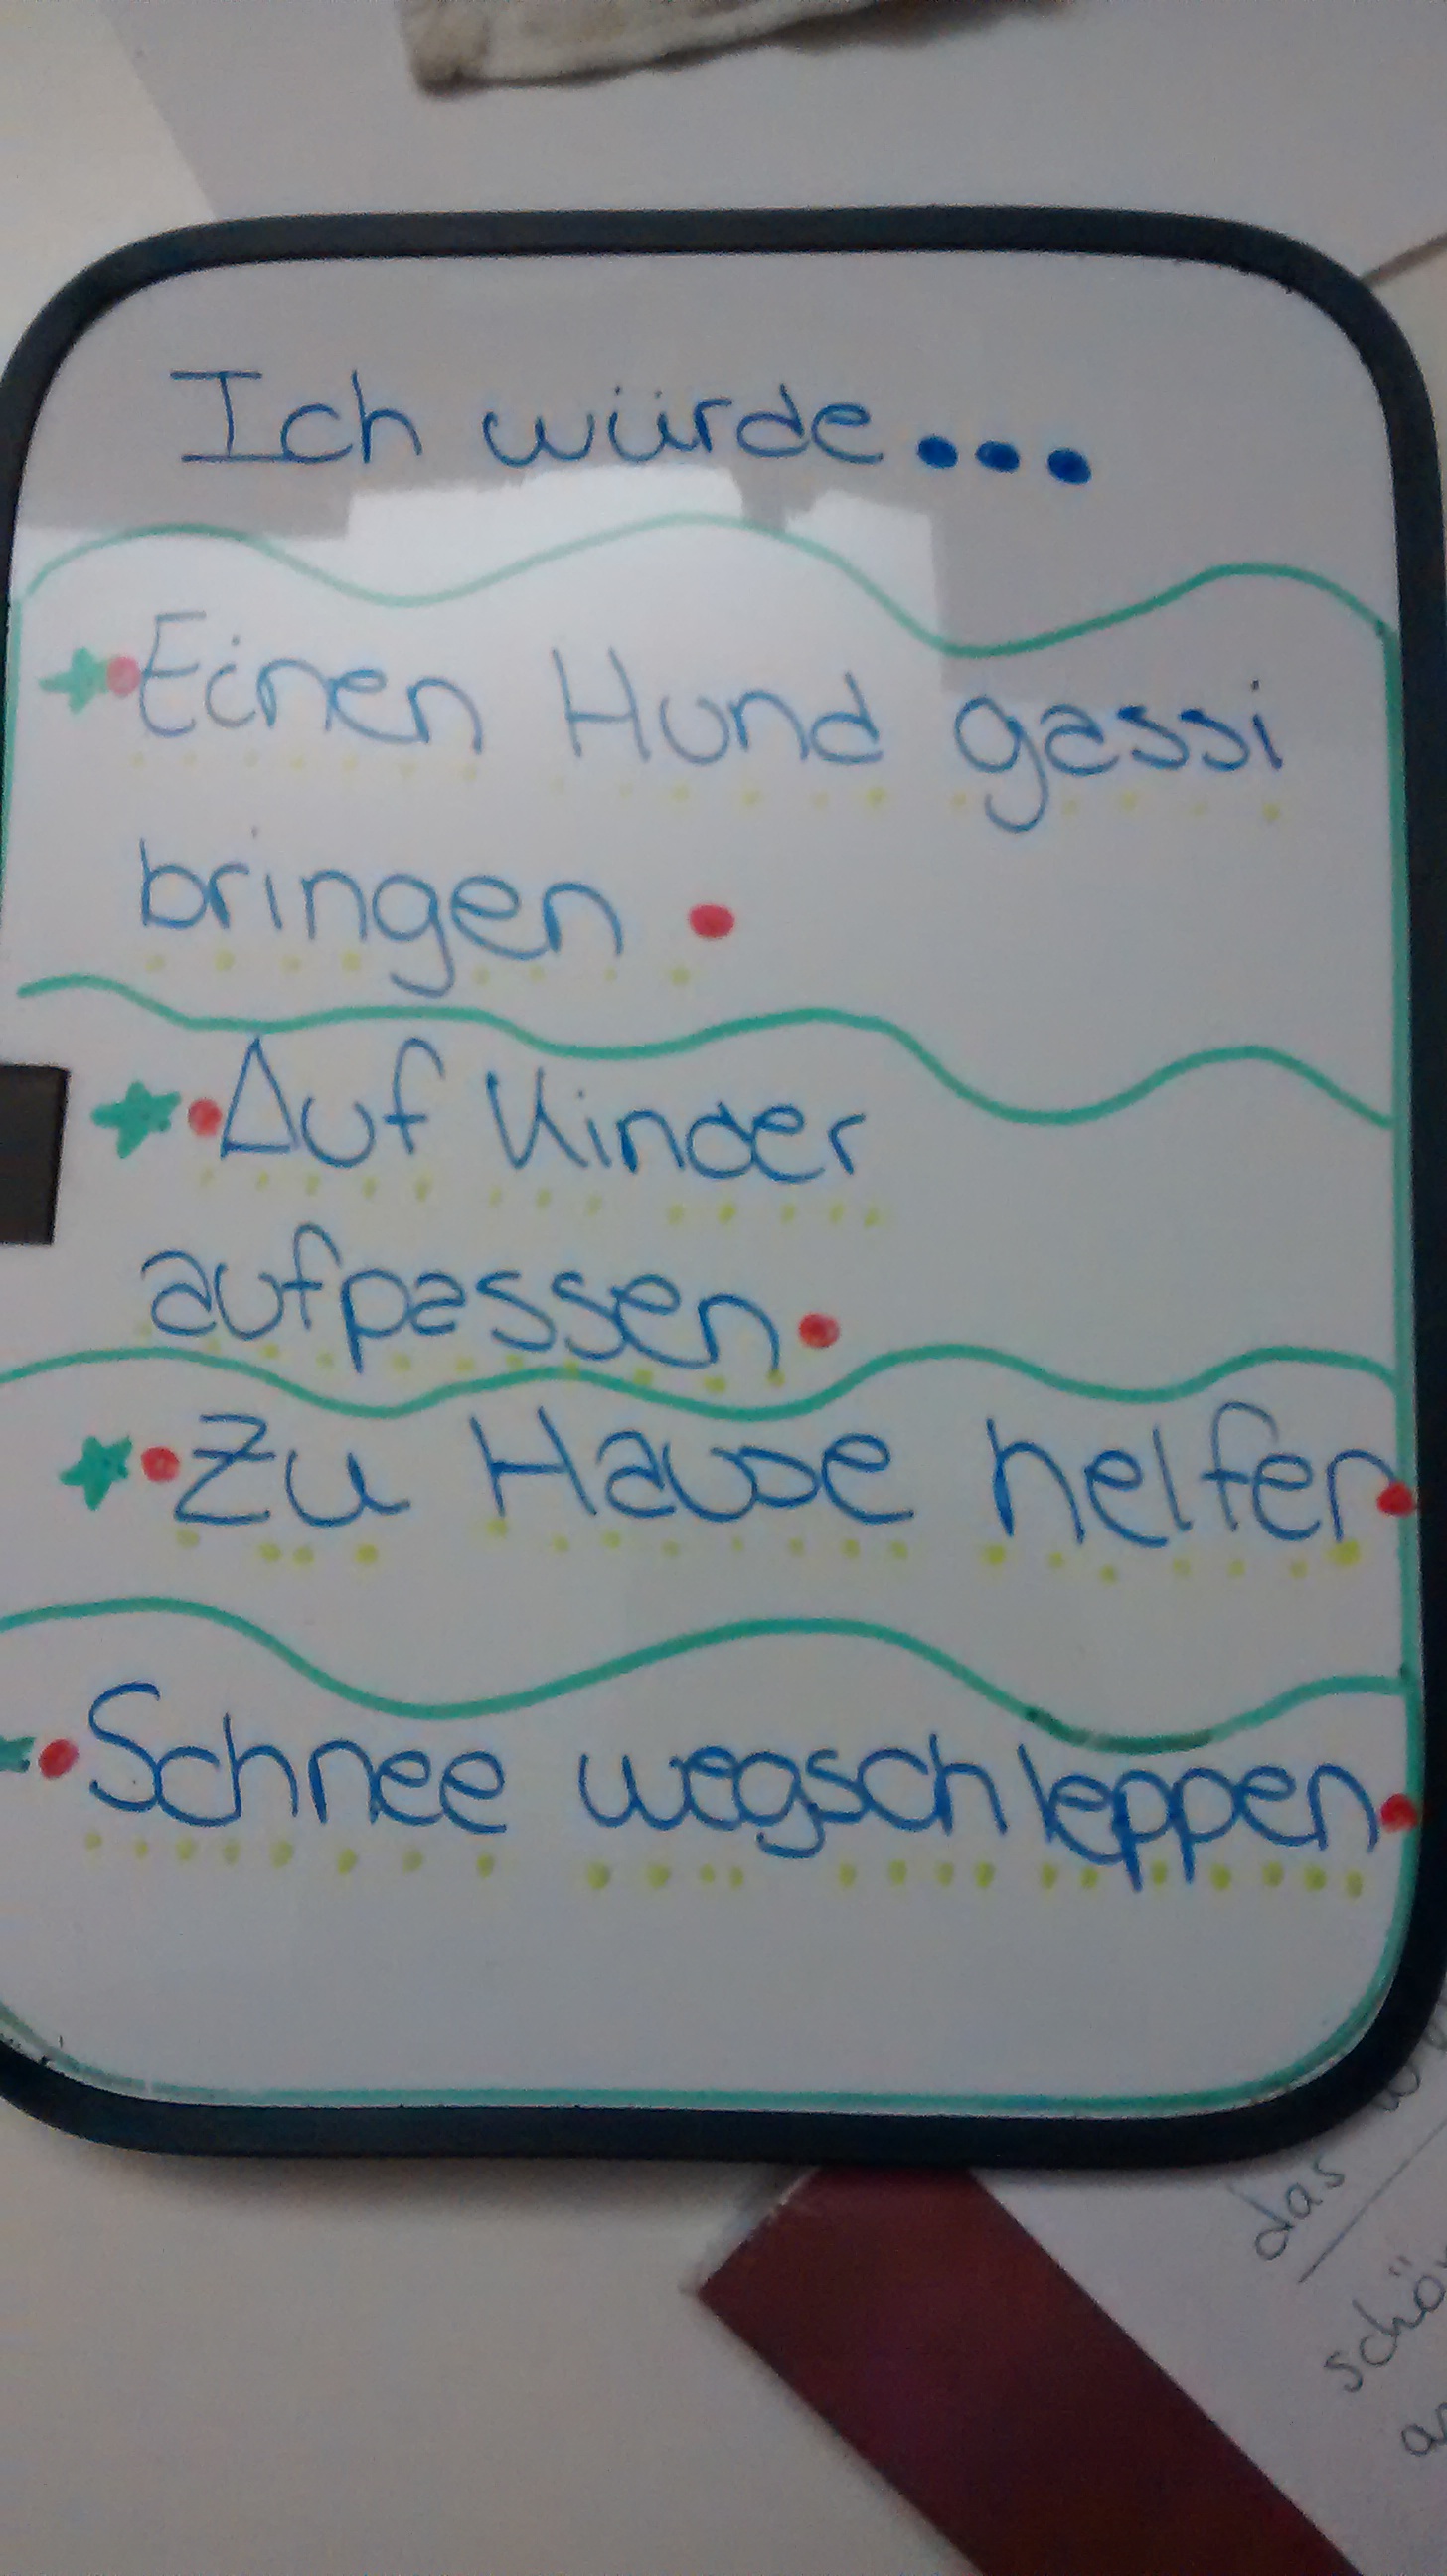 Ich würde...
Einen Hund gassi
bringen.
Auf Kinder
aufpassen.
Zu Hause helfen.
Schnee wegschleppen.
das